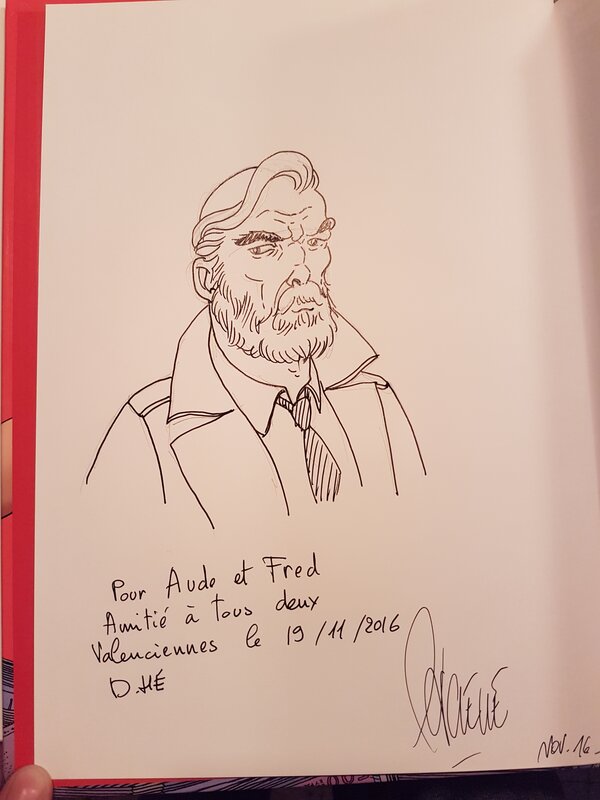 Pour Aude et Fred
Amitié à tous deux
Valenciennes le 19/11/2016
D.HÉ
NOV. 16_